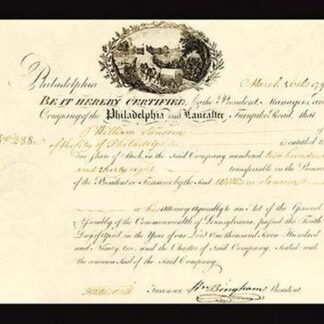 Philadelphia March 26th 179
BE IT HEREBY CERTIFIED, by the President, Managers, and
Company of the Philadelphia and Lancaster Turnpike Road, that
No. 238. William Sansom
of the City of Philadelphia is entitled to
One share of Stock, in the Said Company numbered two hundred
and thirty eight transferable in the Presence
of the President or Treasurer by the said William Sansom
or his Attorney Agreeably to an Act of the General
Assembly of the Commonwealth of Pennsylvania, passed the Ninth
Day of April in the Year of our Lord One thousand Seven Hundred
and Ninety two, and the Charter of Said Company, Sealed with
the common Seal of the Said Company.
Treasurer Wm Bingham President